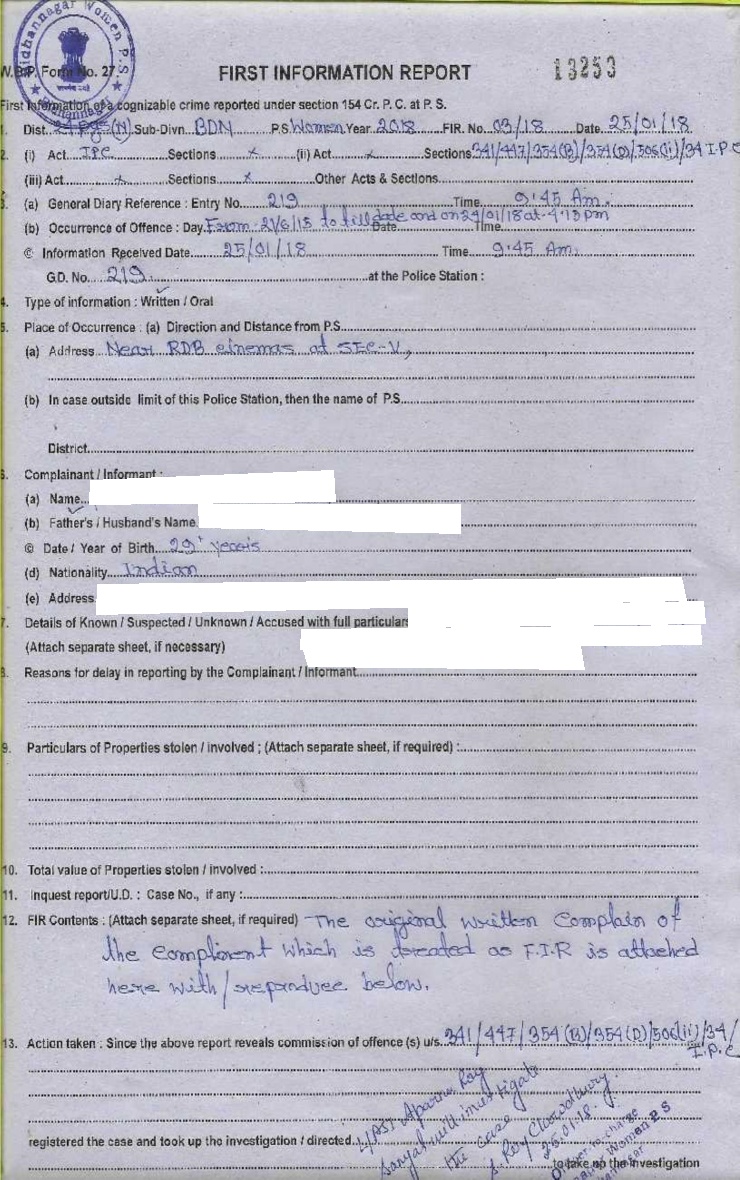 Bidhannagar Women P.S
W.B.P. Form No. 27
FIRST INFORMATION REPORT
13253
First Information of a cognizable crime reported under section 154 Cr. P. C. at P. S.
1. Dist. 24 Pgs (N) Sub-Divn. BDN P.S. Women Year 2018 FIR. No. 03/18 Date. 25/01/18
2. (i) Act. IPC Sections x (ii) Act x Sections 341/447/354(B)/354(D)/506(ii)/34 I.P.C
(iii) Act x Sections x Other Acts & Sections
3. (a) General Diary Reference : Entry No. 219 Time 9:45 Am.
(b) Occurrence of Offence : Day. From 21/6/15 to till date and on 24/01/18 at 4:15 pm Date Time
© Information Received Date 25/01/18 Time 9:45 Am.
G.D. No. 219 at the Police Station :
4. Type of information : Written / Oral
5. Place of Occurrence : (a) Direction and Distance from P.S.
(a) Address Near RDB cinemas at SEC-V,
(b) In case outside limit of this Police Station, then the name of P.S.
District
6. Complainant / Informant :
(a) Name
(b) Father's / Husband's Name
© Date / Year of Birth 29 years
(d) Nationality Indian
(e) Address
7. Details of Known / Suspected / Unknown / Accused with full particulars
(Attach separate sheet, if necessary)
8. Reasons for delay in reporting by the Complainant / Informant
9. Particulars of Properties stolen / involved ; (Attach separate sheet, if required) :
10. Total value of Properties stolen / involved :
11. Inquest report/U.D. : Case No., if any :
12. FIR Contents : (Attach separate sheet, if required) The original written Complain of
the complinent which is treated as F.I.R is attached
here with / reproduce below.
13. Action taken : Since the above report reveals commission of offence (s) u/s. 341/447/354(B)/354(D)/506(ii)/34/
I.P.C
L/ASI Aparna Roy
Sanyal will investigate
the case
S. Roy Chowdhury
25.01.18.
Officer-in-charge
Women P S
registered the case and took up the investigation / directed
to take up the investigation